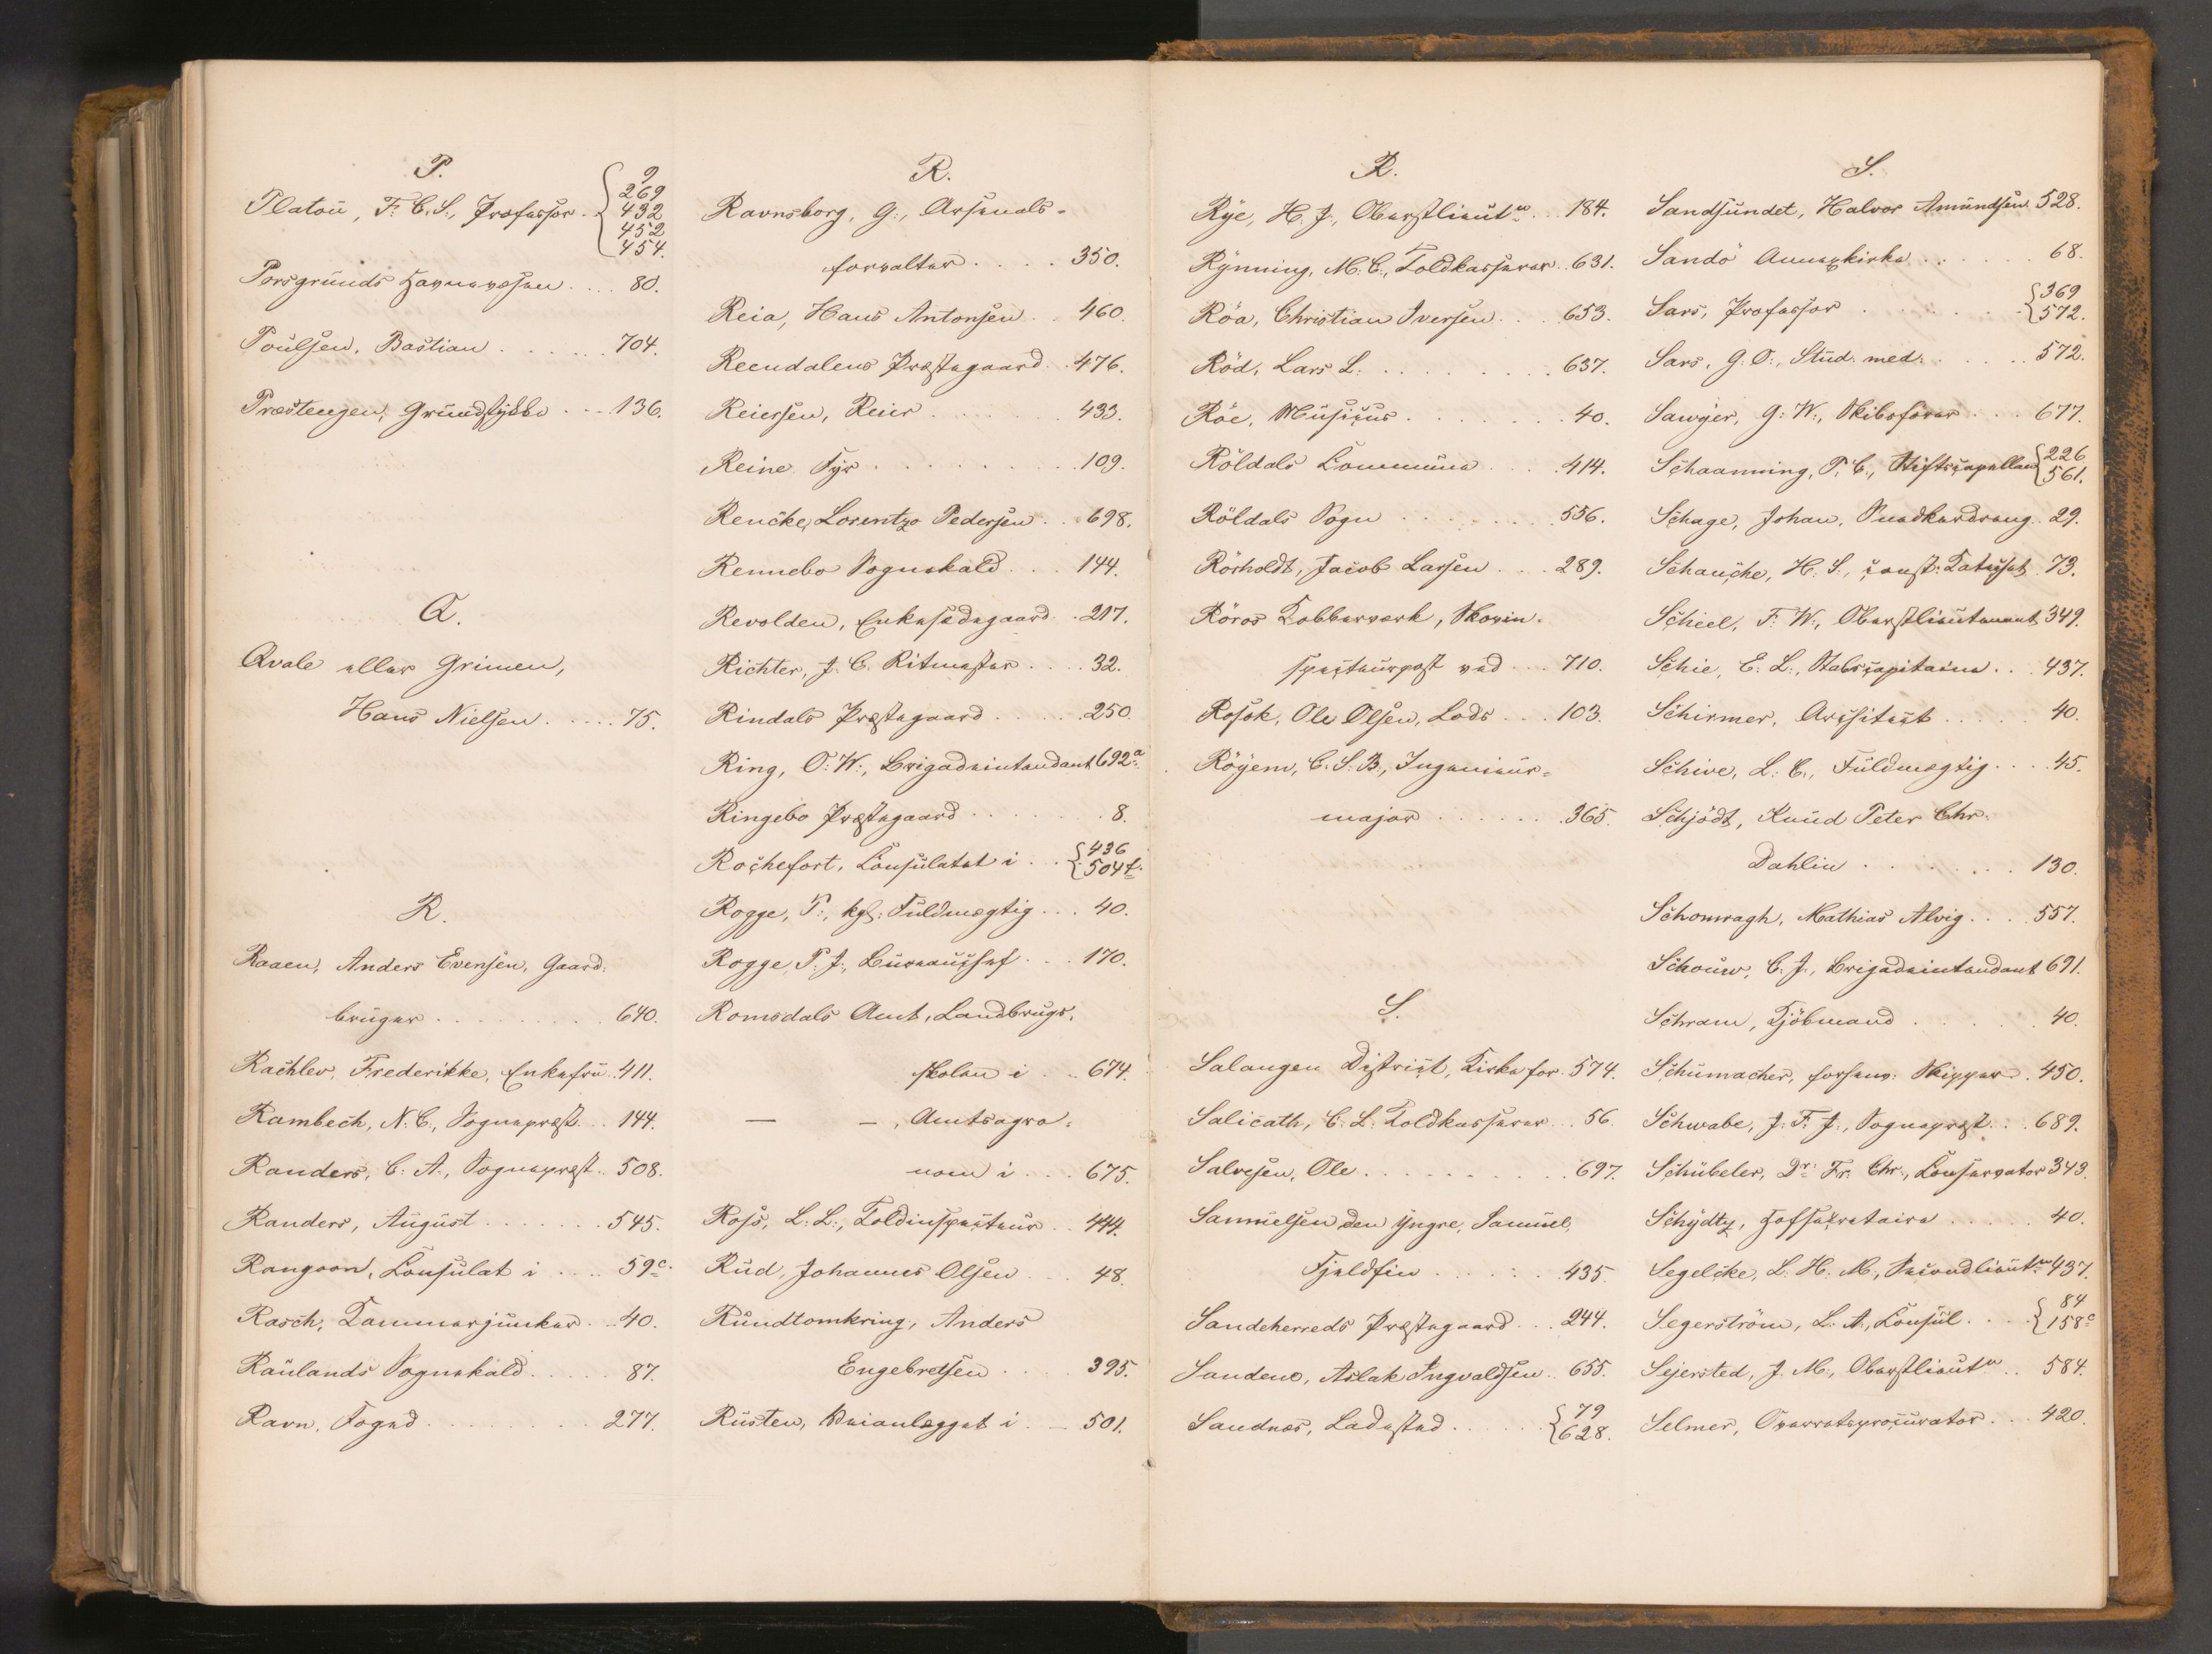 P.
Platou, F. C. S., Professor . { 9 269 432 452 454.
Porsgrunds Havnevæsen .... 80.
Poulsen, Bastian ...... 704.
Præstengen, Grundstykke ... 136.
Q.
Qvale eller Grimen,
Hans Nielsen ..... 75.
R.
Raaen, Anders Evensen, Gaard-
bruger ........ 640.
Rachlew, Frederikke, Enkefru .. 411.
Rambech, N. C., Sognepræst ... 144.
Randers, C. A., Sognepræst .. 508.
Randers, August ...... 545.
Rangoon, Consulat i .... 59c.
Rasch, Kammerjunker ... 40.
Raulands Sognekald ..... 87.
Ravn, Foged ........ 277.
R.
Ravnsborg, G., Arsenals-
forvalter .... 350.
Reia, Hans Antonsen .. 460.
Reendalens Præstegaard .. 476.
Reiersen, Reier ..... 433.
Reine Fyr ........ 109.
Rencke, Lorentz Pedersen .. 698.
Rennebo Sognekald ... 144.
Revolden, Enkesædegaard .. 217.
Richter, J. C. Ritmester .... 32.
Rindals Præstegaard ..... 250.
Ring, O. W., Brigadeintendant 692a.
Ringebo Præstegaard ....... 8.
Rochefort, Consulatet i .. { 436 504f.
Rogge, P., kgl. Fuldmægtig ... 40.
Rogge, P. J., Bureauchef ... 170.
Romsdals Amt, Landbrugs-
skolen i .. 674.
— —, Amtsagro-
nom i ... 675.
Ross, L. L., Toldinspecteur .. 444.
Rud, Johannes Olsen ... 48.
Rundtomkring, Anders
Engebretsen .... 395.
Rusten, Veianlægget i ... 501.
R.
Rye, H. J., Oberstlieutn. .. 184.
Rynning, M. C., Toldkasserer .. 631.
Röa, Christian Iversen ... 653.
Röd, Lars L. ........ 637.
Röe, Musicus ....... 40.
Röldals Commune .... 414.
Röldals Sogn ....... 556.
Rörholdt, Jacob Larsen ... 289.
Röros Kobberværk, Skovin-
specteurpost ved ... 710.
Rosök, Ole Olsen, Lods ... 103.
Röyem, C. S. B., Ingenieur-
major ....... 365.
S.
Salangen District, Kirke for . 574.
Salicath, C. L. Toldkasserer ... 56.
Salvesen, Ole ......... 697.
Samuelsen den Yngre, Samuel,
Fjeldfin ...... 435.
Sandeherreds Præstegaard ... 244.
Sanden, Aslak Ingvaldsen .. 655.
Sandnæs, Ladested ..... { 79 628.
S.
Sandsundet, Halvor Amundsen 528.
Sandö Annexkirke ...... 68.
Sars, Professor ....... { 369 572.
Sars, G. O., Stud. med. ..... 572.
Sawyer, G. W., Skibsförer ... 677.
Schaanning, P. C., Stiftscapellan { 226 561.
Schage, Johan, Snedkerdreng .. 29.
Schanche, H. S., const. Catechet 73.
Scheel, F. W., Oberstlieutenant 349.
Schie, E. L., Stabscapitaine ... 437.
Schirmer, Architect .... 40.
Schive, L. C., Fuldmægtig .... 45.
Schjödt, Knud Peter Chr.
Dahlin ....... 130.
Schonwagh, Mathias Alvig ... 557.
Schouw, C. J., Brigadeintendant 691.
Schram, Kjöbmand ...... 40.
Schumacher, forhenv. Skipper .. 450.
Schwabe, J. F. J., Sognepræst ... 689.
Schübeler, Dr. Fr. Chr., Conservator 343.
Schydtz, Hofsecretaire ..... 40.
Segelcke, L. H. M., Secondlieutn. 437.
Segerström, L. A., Consul .... { 84 158c
Sejersted, J. M., Oberstlieutn .. 584.
Selmer, Overretsprocurator ... 420.